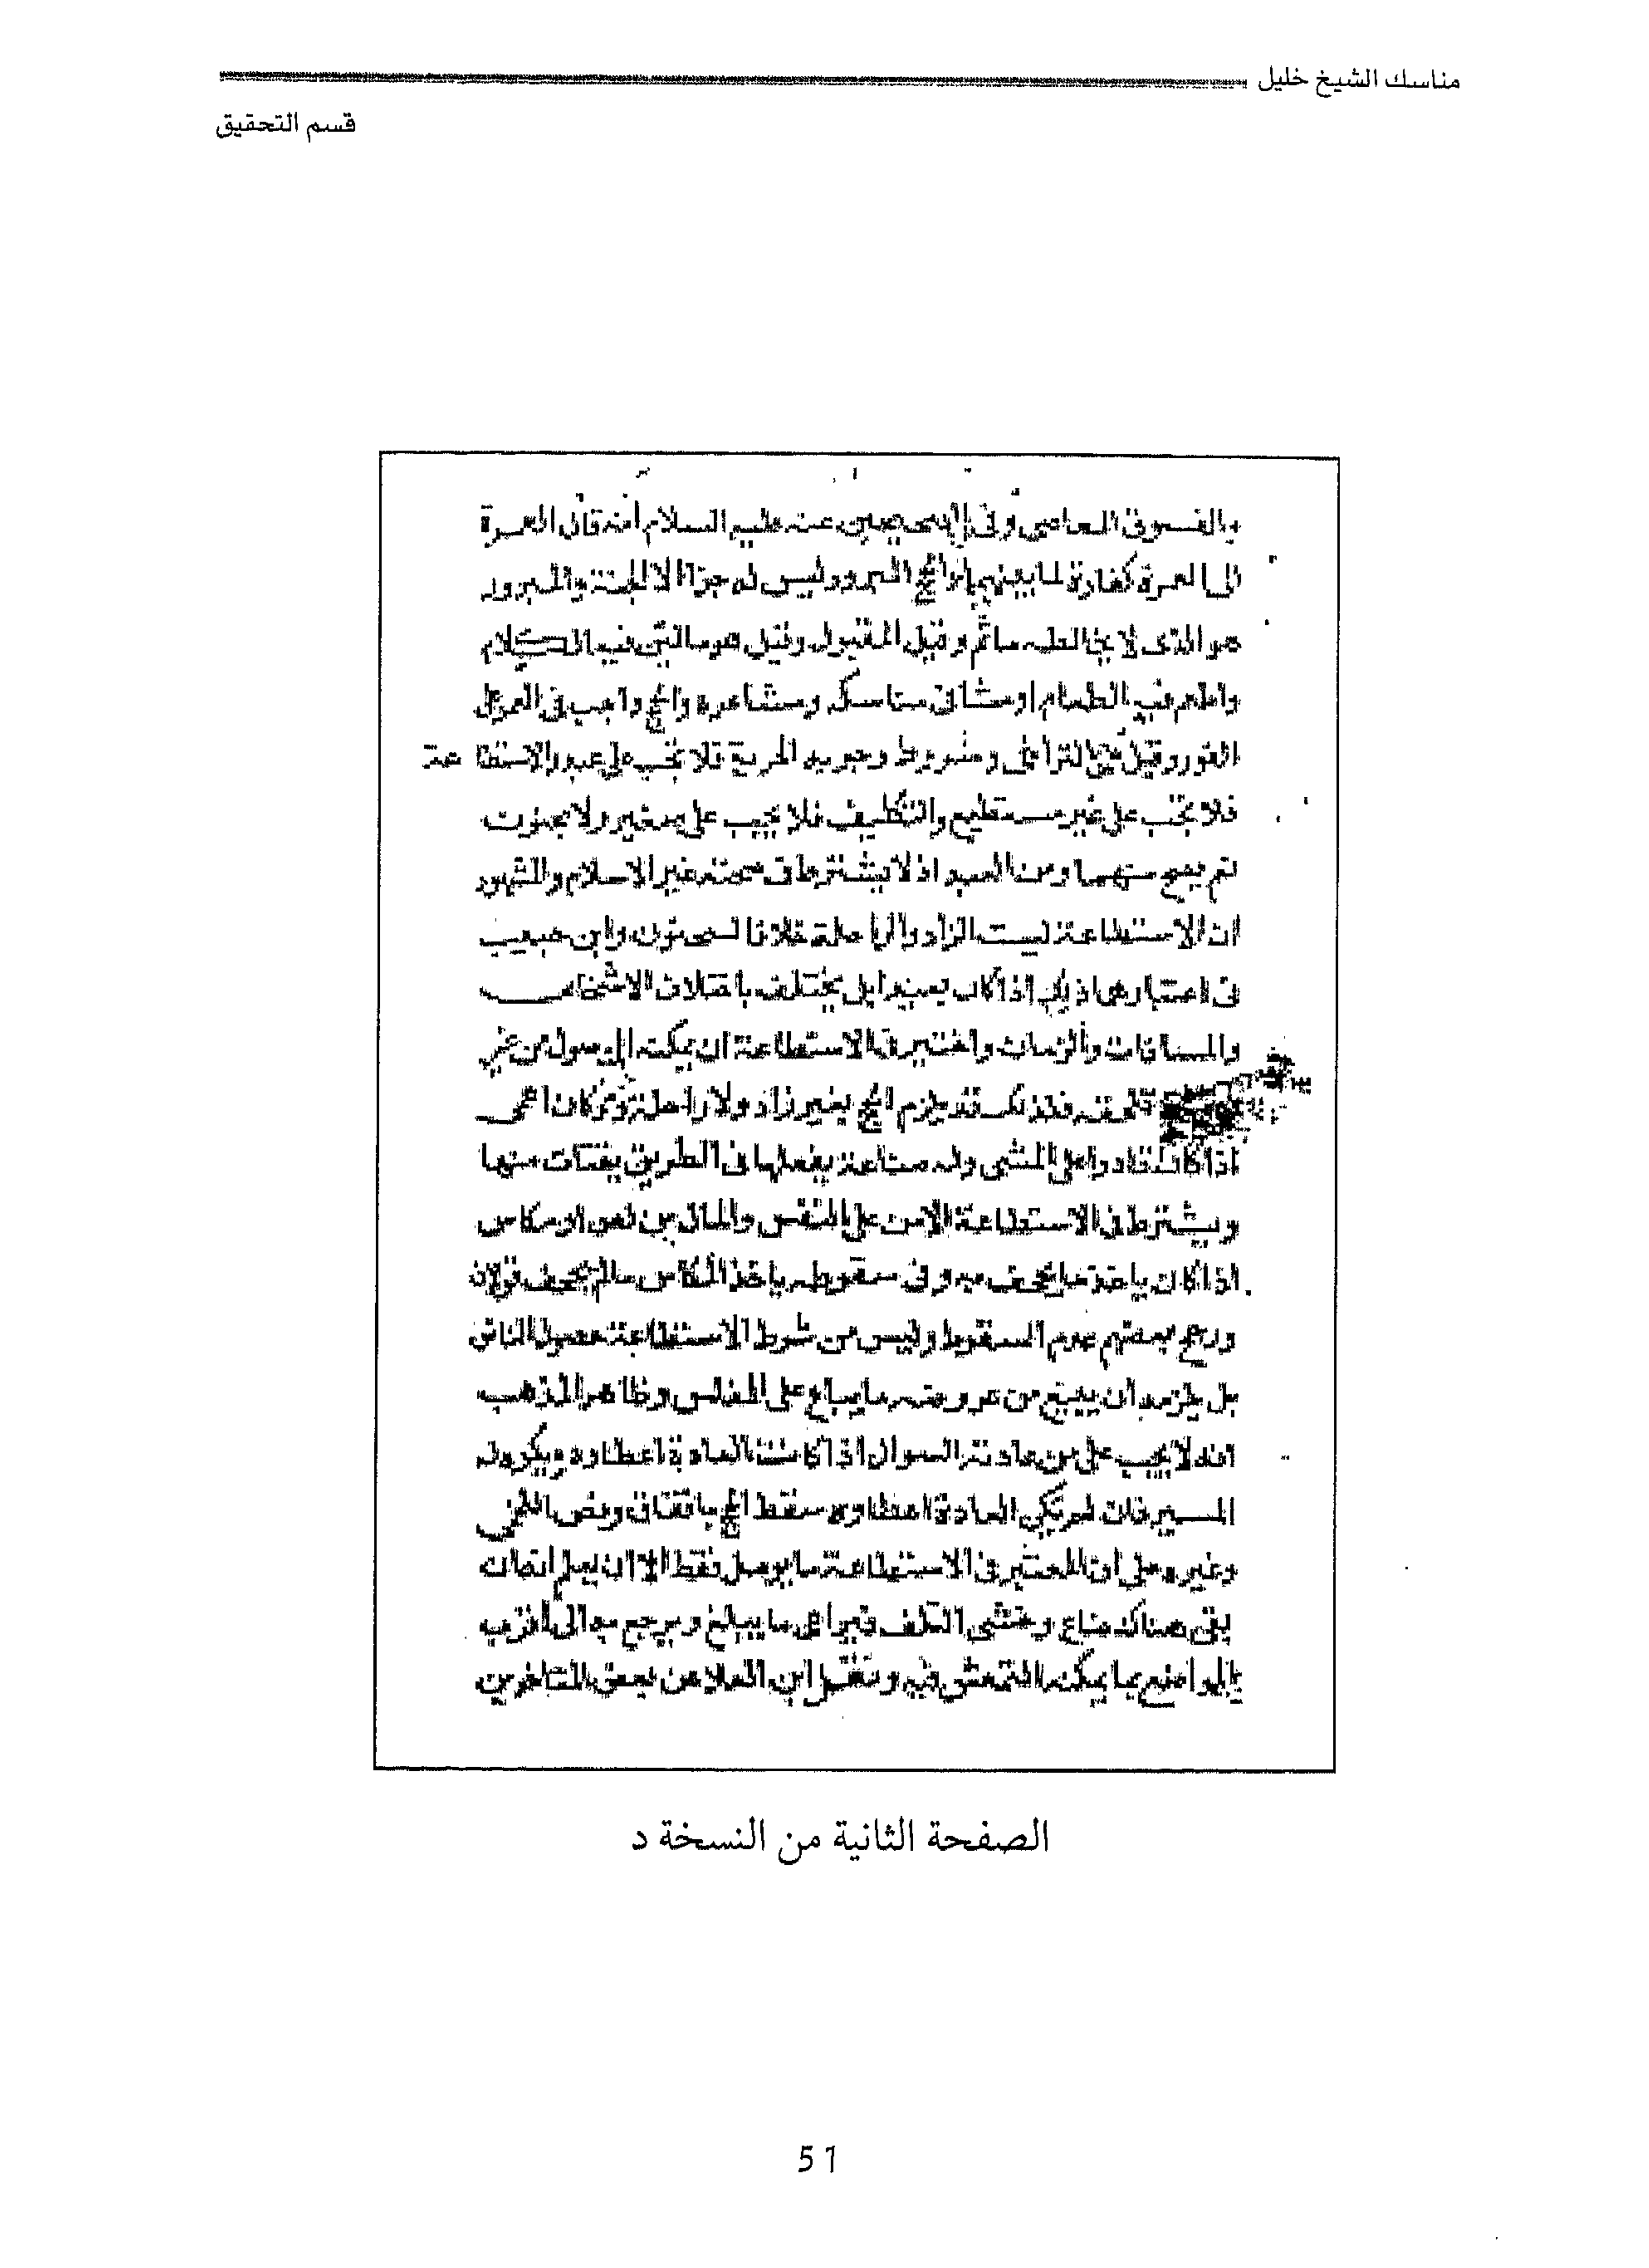 مناسك الشيخ خليل
قسم التحقيق
والفسوق المعاصي وفي الصحيحين عنه عليه السلام أنه قال العمرة
الى العمرة كفارة لما بينهما والحج المبرور ليس له جزاء الا الجنة والمبرور
هو الذي لا يخالطه ماثم وقيل المقبول وقيل هو ما الكلام
واطعم فيه الطعام او مناسكه ومشاعره والحج واجب في العمر على
الفور وقيل على التراخي وشروط وجوبه الحرية فلا تجب على عبد والاستطاعة
فلا تجب على غير مستطيع والتكليف فلا يجب على صغير ولا مجنون
نعم يصح منهما ومن العبد اذ لا يشترط في صحته غير الاسلام والمشهور
ان الاستطاعة ليست الزاد والراحلة خلافا لسحنون وابن حبيب
في اعتبارهما بعيدا بل يختلف باختلاف الاشخاص
والمسافات والازمان والمعتبر في الاستطاعة ان يمكنه الوصول من غير
فلذلك قد يلزم الحج بغير زاد ولا راحلة ولو كان اعمى
اذا كان قادرا على المشي وله صناعة يفعلها في الطريق يقتات منها
ويشترط في الاستطاعة الامن على النفس والمال من لص او مكاس
اذا كان ياخذ ما يجحف به وفي سقوطه ياخذ المكاس ما لم يجحف قولان
ورجح بعضهم عدم السقوط وليس من شرط الاستطاعة حصول الناض
بل يلزمه ان يبيع من عروضه ما يباع على المفلس وظاهر المذهب
انه لا يجب على من عادته السوال اذا كانت العادة اعطاوه ويكره له
المسير فان لم تكن العادة اعطاوه سقط الحج باتفاق ونص اللخمي
وغيره على ان المعتبر في الاستطاعة ما يوصل فقط الا ان يعلم انه ان
بقي هناك ضاع وخشي التلف فيراعى ما يبلغ ويرجع به الى اقرب
المواضع مما يمكنه التمعش فيه ونقل ابن المعلا عن بعض المتاخرين
الصفحة الثانية من النسخة د
51